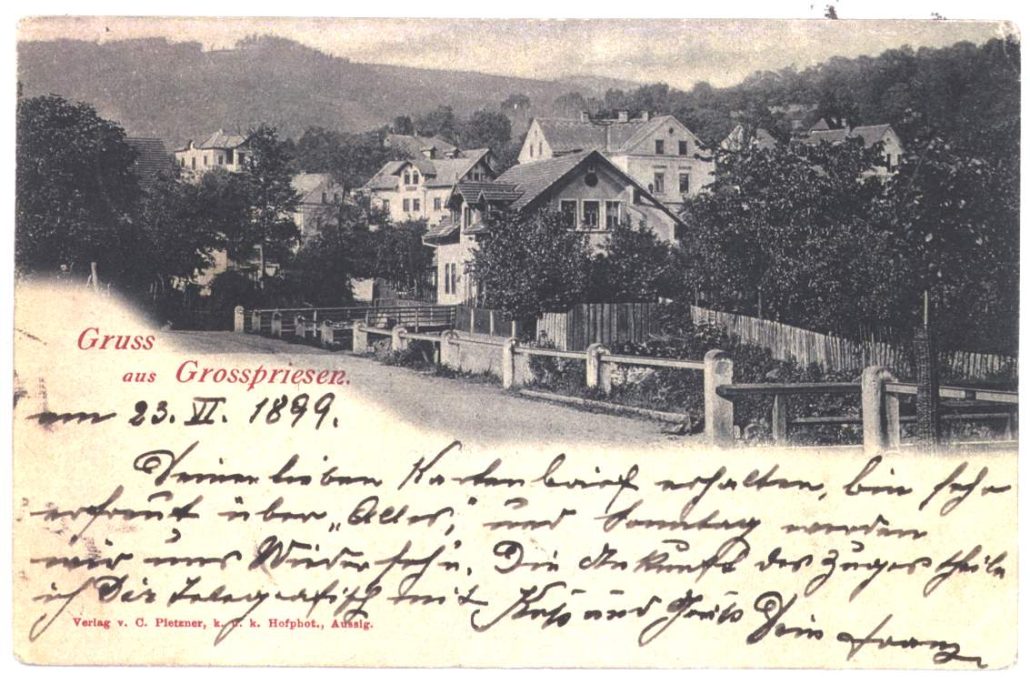 Gruss
aus Grosspriesen.
am 23. VI. 1899.
Deinen lieben Kartenbrief erhalten, bin sehr
erfreut über „Alles“, und Sonntag werden
wir uns Wiedersehn. Die Ankunft des Zuges theile
ich Dir telegrafisch mit Kuss und Gruss Dein Franz
Verlag v. C. Pietzner, k. u. k. Hofphot., Aussig.